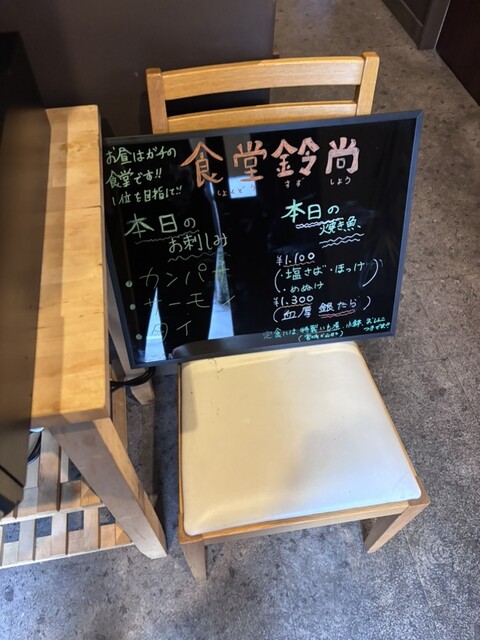 お昼はガチの
食堂です!!
1位を目指して!!
食堂鈴尚
しょくどう すず しょう
本日の
お刺しみ
・カンパチ
・サーモン
・タイ
本日の
焼き魚
¥1.100
(・塩さば・ほっけ
・めぬけ)
¥1.300
(血厚 銀たら)
定食には、特製いも煮、小鉢、おしんこ
つきです!!